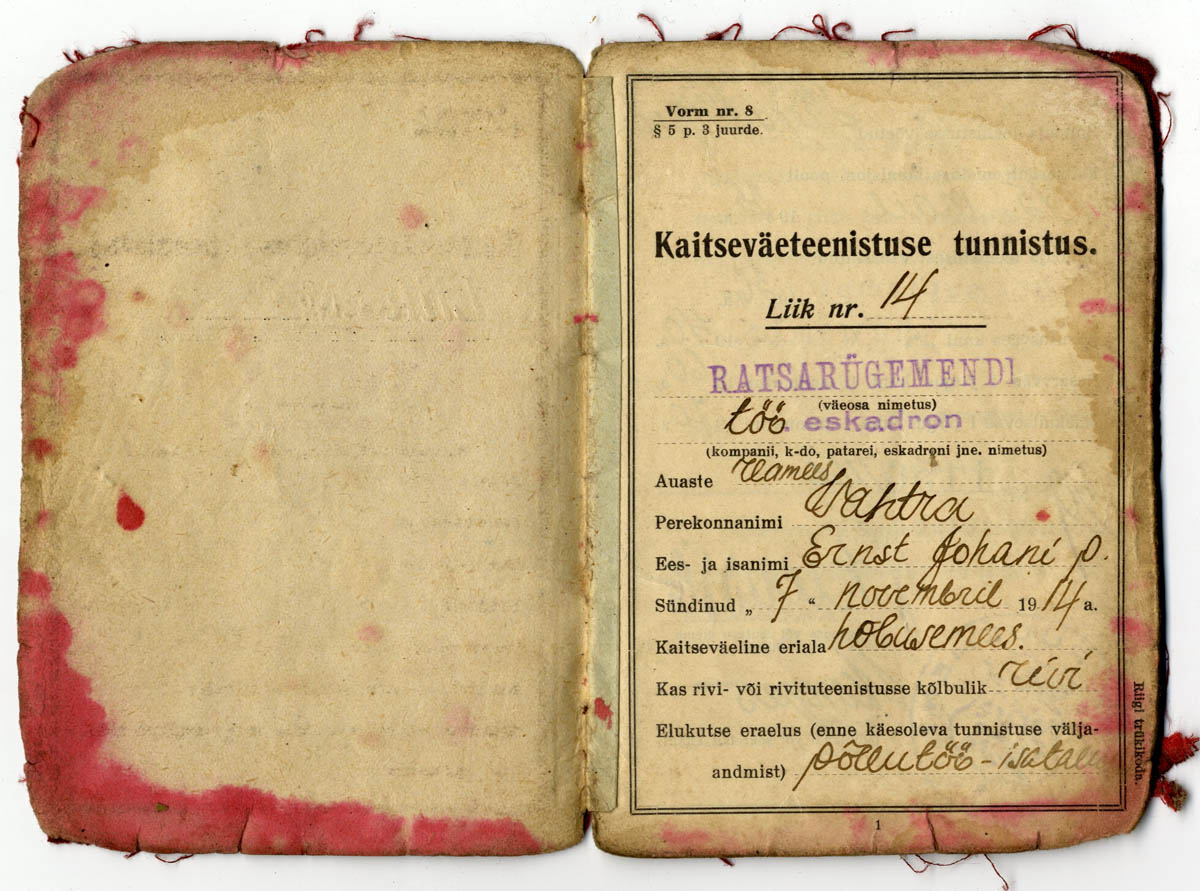 Vorm nr. 8
§ 5 p. 3 juurde.
Kaitseväeteenistuse tunnistus.
Liik nr. 14
RATSARÜGEMENDI
(väeosa nimetus)
töö. eskadron
(kompanii, k-do, patarei, eskadroni jne. nimetus)
Auaste reamees
Perekonnanimi Vahtra
Ees- ja isanimi Ernst Johani p.
Sündinud „ 7 “ novembril 1914 a.
Kaitseväeline eriala hobusemees.
Kas rivi- või rivituteenistusse kõlbulik rivi
Elukutse eraelus (enne käesoleva tunnistuse välja-
andmist) põllutöö - isatalu
Riigi trükikoda.
1